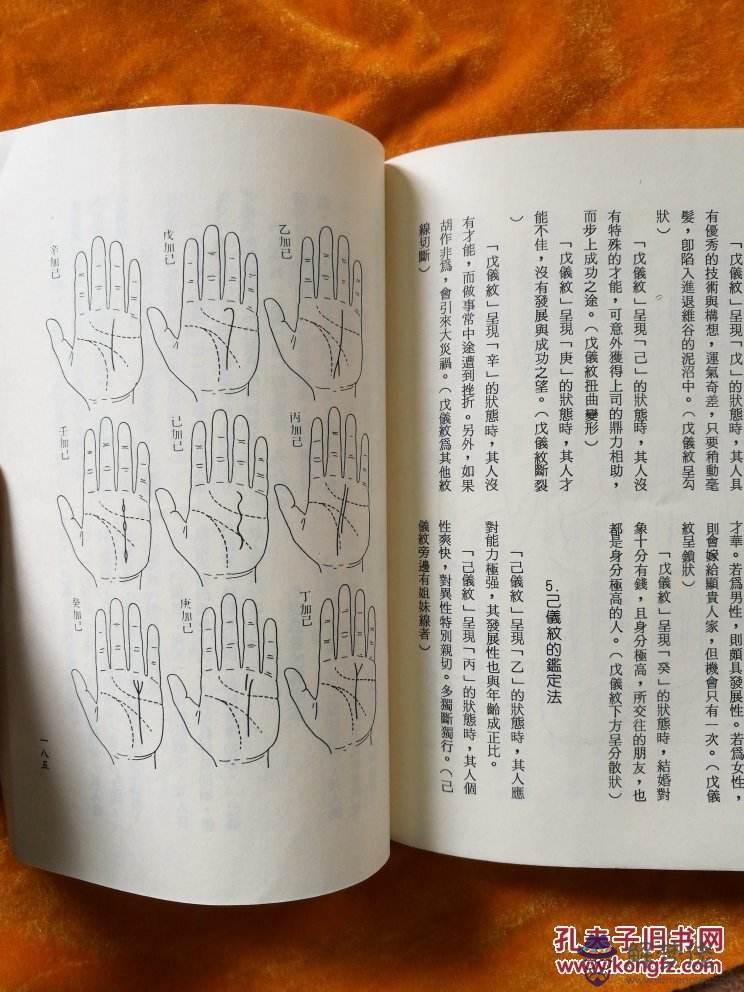 「戊儀紋」呈現「丁」的狀態時，其人具
有優秀的技術與構想，運氣奇差，只要稍動毫
髮，卽陷入進退維谷的泥沼中。（戊儀紋呈勾
狀）
「戊儀紋」呈現「己」的狀態時，其人沒
有特殊的才能，可意外獲得上司的鼎力相助，
而步上成功之途。（戊儀紋扭曲變形）
「戊儀紋」呈現「庚」的狀態時，其人才
能不佳，沒有發展與成功之望。（戊儀紋斷裂
）
「戊儀紋」呈現「辛」的狀態時，其人沒
有才能，而做事常中途遭到挫折。另外，如果
胡作非爲，會引來大災禍。（戊儀紋爲其他紋
線切斷）
才華。若爲男性，則頗具發展性。若爲女性，
則會嫁給顯貴人家，但機會只有一次。（戊儀
紋呈鎖狀）
「戊儀紋」呈現「癸」的狀態時，結婚對
象十分有錢，且身分極高，所交往的朋友，也
都是身分極高的人。（戊儀紋下方呈分散狀）
5.己儀紋的鑑定法
「己儀紋」呈現「乙」的狀態時，其人應
對能力極强，其發展性也與年齡成正比。
「己儀紋」呈現「丙」的狀態時，其人個
性爽快，對異性特別親切。多獨斷獨行。（己
儀紋旁邊有姐妹線者）
乙加己
丙加己
丁加己
戊加己
己加己
庚加己
辛加己
壬加己
癸加己
一八五
孔夫子旧书网
www.kongfz.com